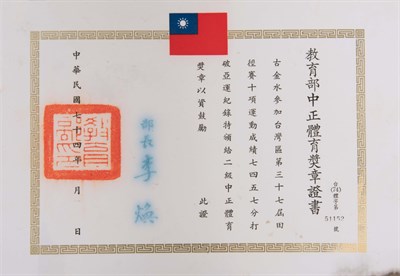 教育部中正體育獎章證書
台(74)體字第
51152
號
古金水參加台灣區第三十七屆田
徑賽十項運動成績七四五七分打
破亞運紀錄特頒給二級中正體育
獎章以資鼓勵
此證
部長李煥
中華民國七十四年
月
日